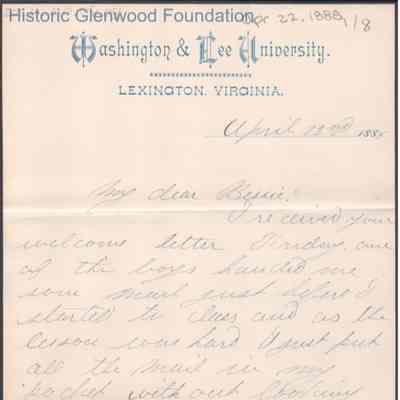 Historic Glenwood Foundation
Apr 22, 1888 1/8
Washington & Lee University.
LEXINGTON, VIRGINIA.
April 22nd 188
My dear Bessie:
I received your
welcome letter Friday, one
of the boys handed me
some mail just before I
started to class and as the
lesson was hard I just put
all the mail in my
pocket without looking